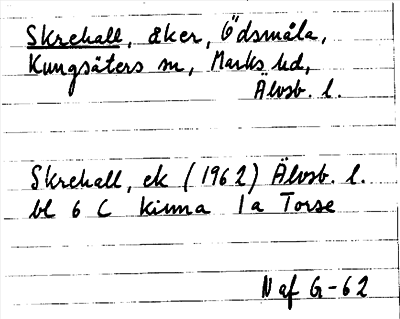 Skrehall, åker, Ödsmåla,
Kungsäters sn, Marks hd,
Älvsb. l.
Skrehall, ek (1962) Älvsb. l.
bl 6 C Kinna 1a Torse
N af G-62